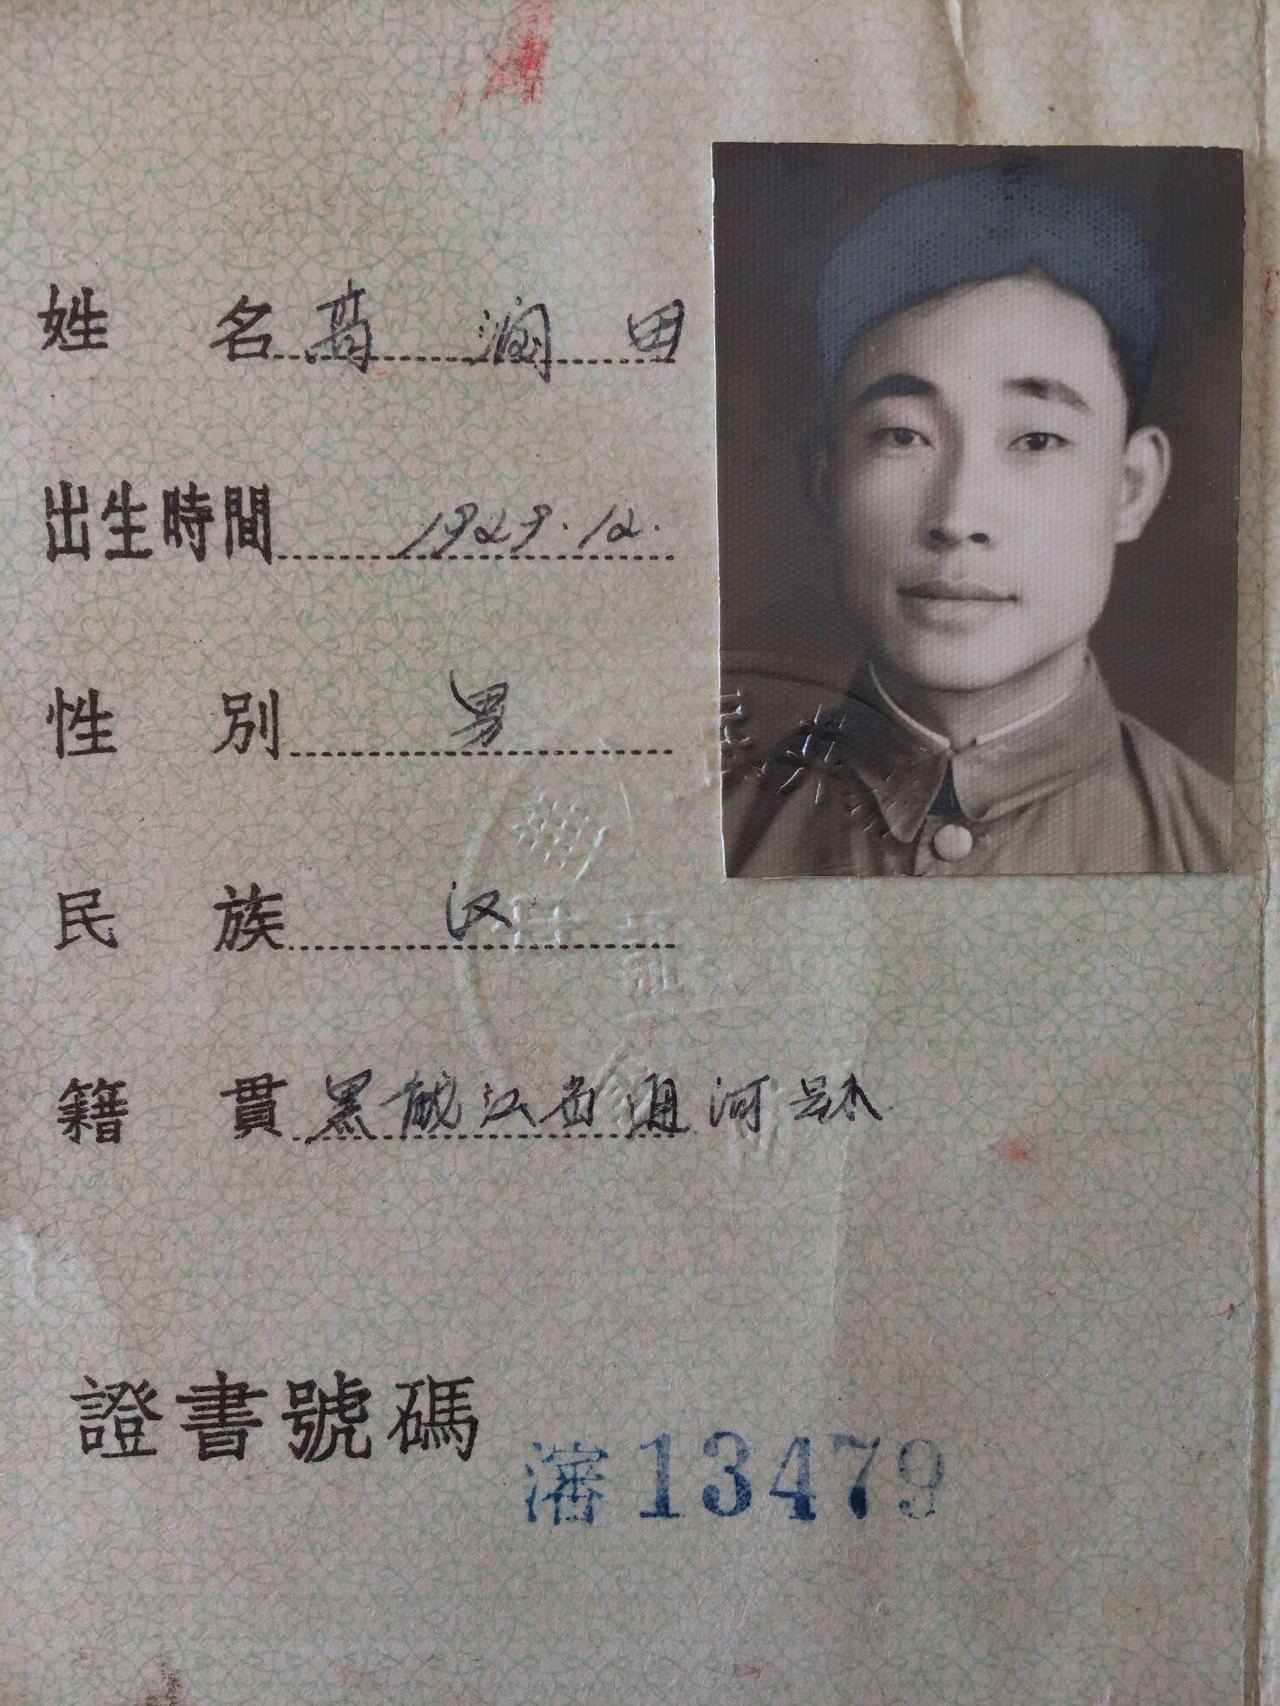 姓名 高澜田
出生時間 1929.12.
性別 男
民族 汉
籍貫 黑龍江省通河县
證書號碼 瀋13479